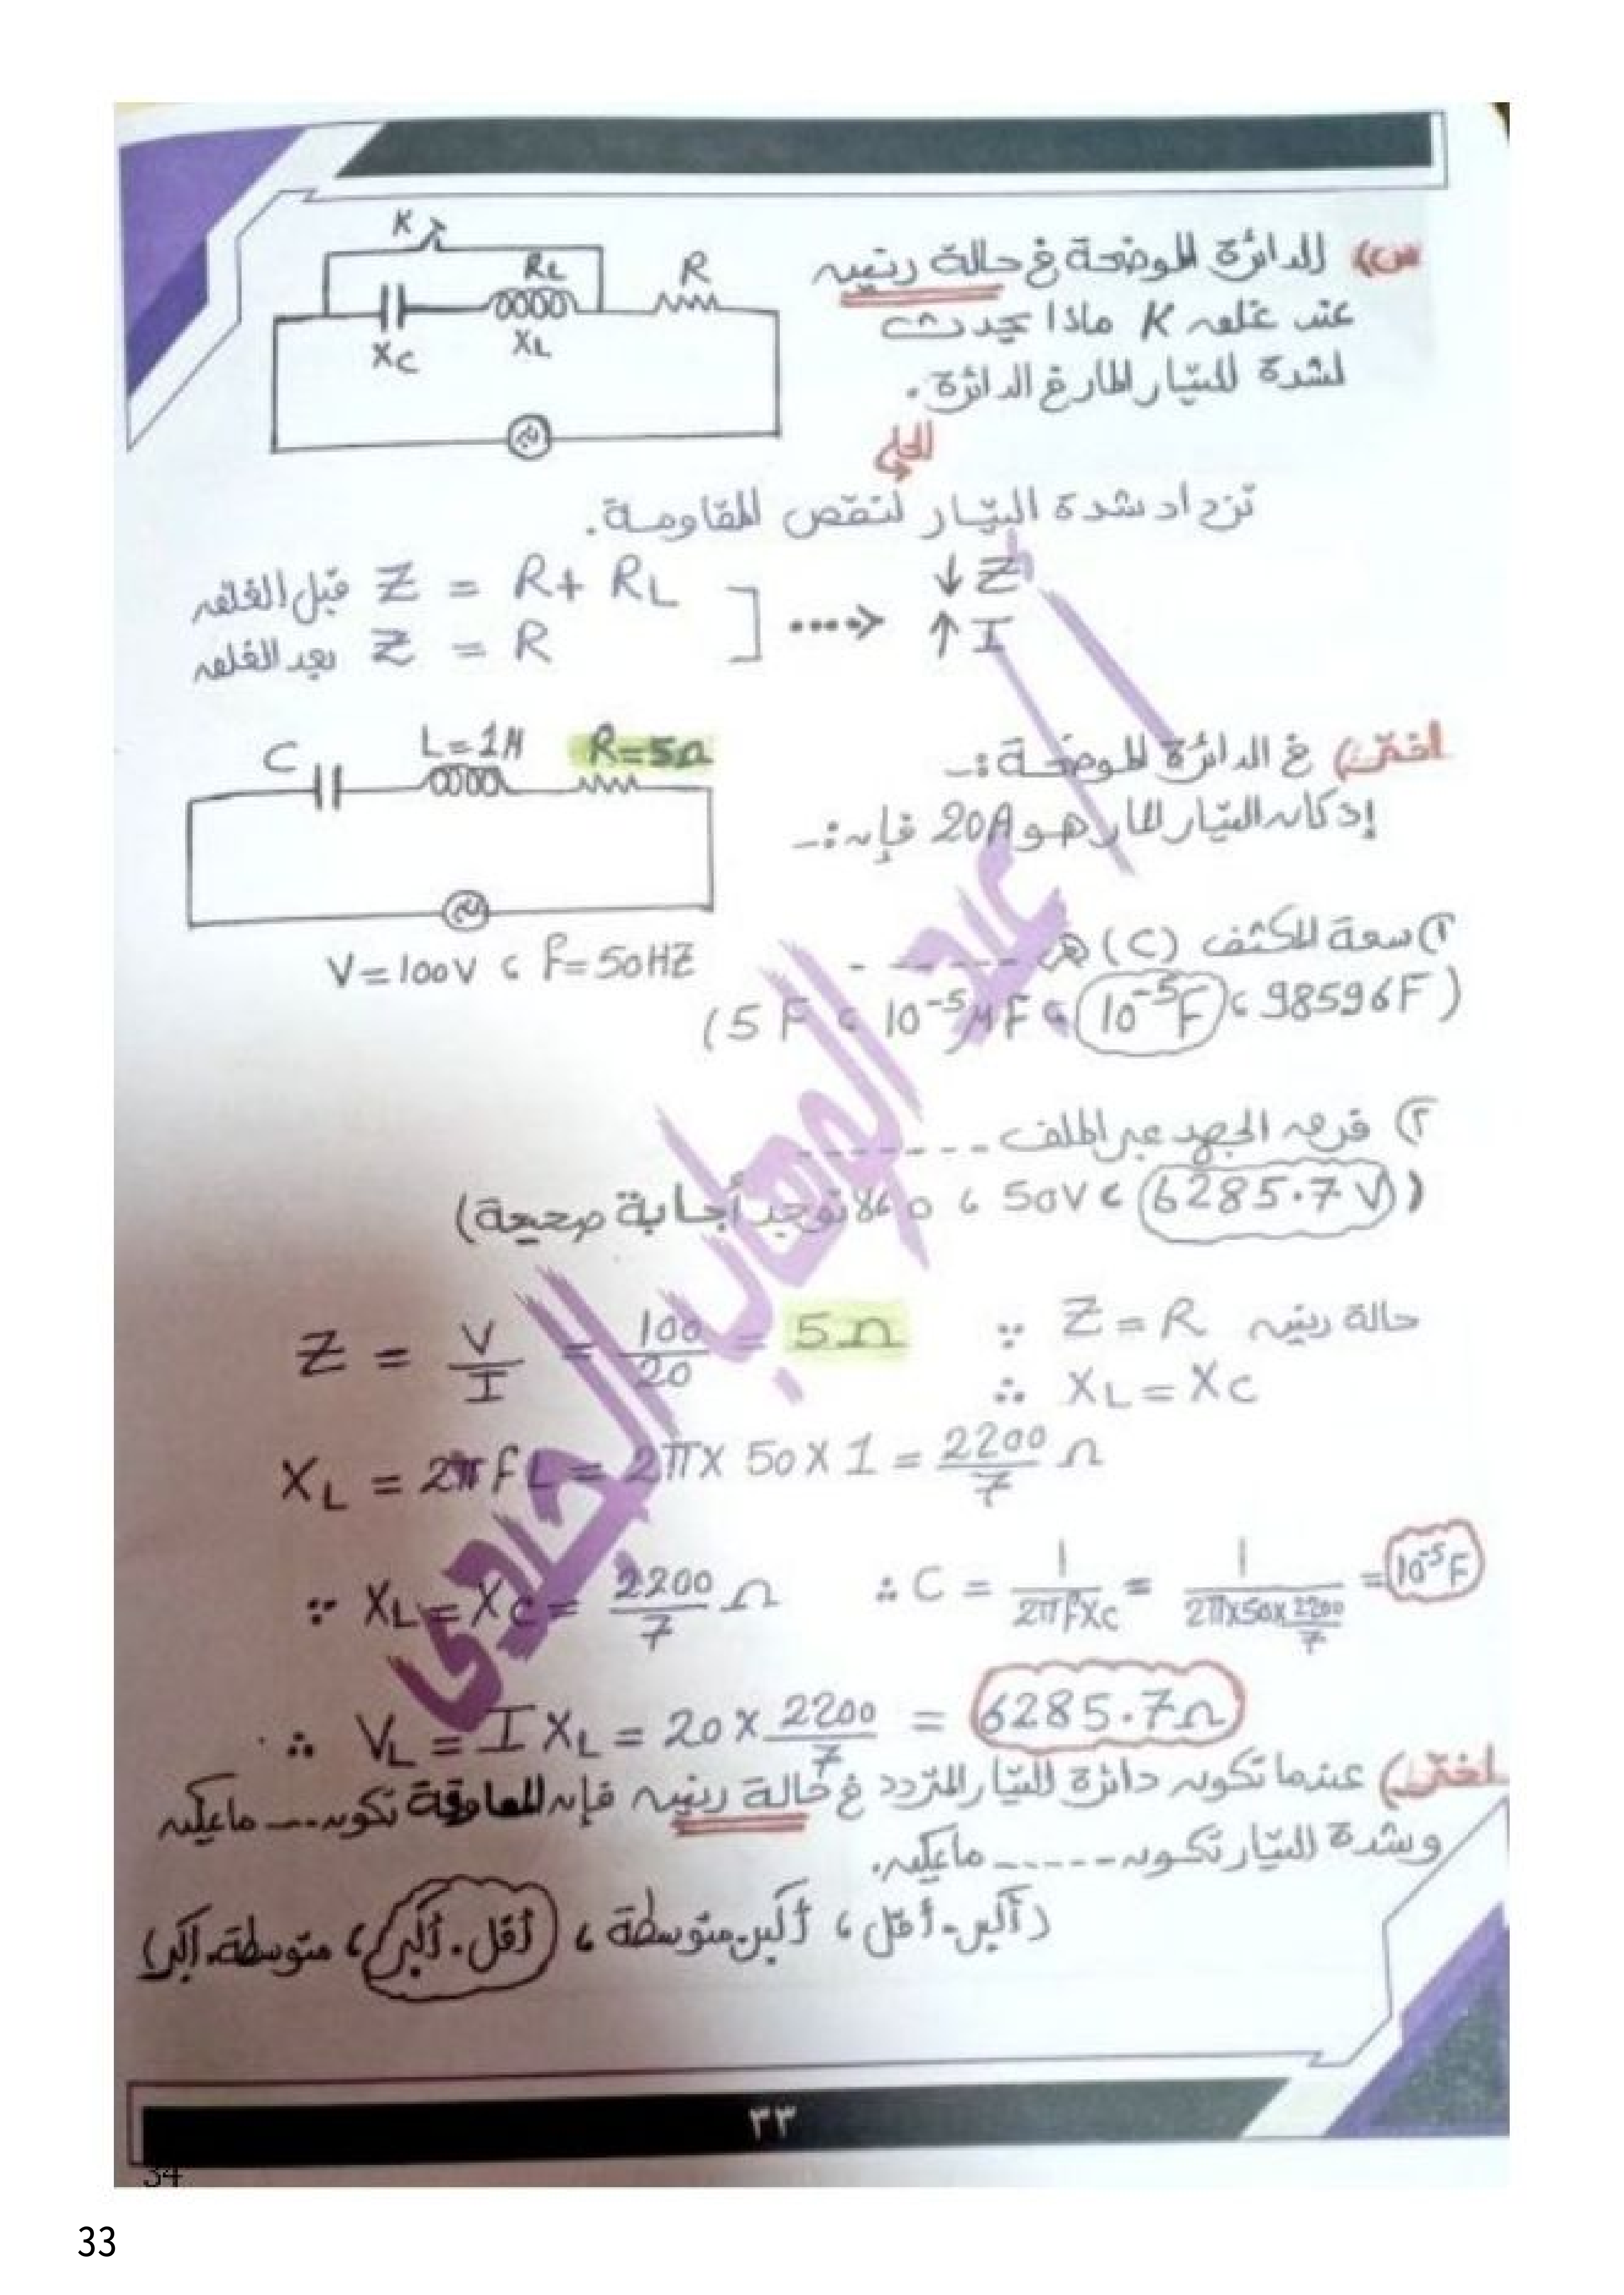 س) الدائرة الموضحة في حالة رنين
عند غلق K ماذا يحدث
لشدة التيار المار في الدائرة.
K
RL
R
XC
XL
الحل
تزداد شدة التيار لنقص المقاومة.
قبل الغلق Z = R + RL
بعد الغلق Z = R
↓ Z
↑ I
اختر) في الدائرة الموضحة:ـ
إذ كان التيار المار هو 20A فإن:ـ
C
L=1H
R=5Ω
V=100V ، f=50HZ
١) سعة المكثف (C) هى - - - - -
(5F ، 10⁻⁵μF ، 10⁻⁵F ، 98596F)
٢) فرق الجهد عبر الملف - - - - - - -
(6285.7V ، 50V ، 0 ، لا توجد أجابة صحيحة)
Z = V/I = 100/20 = 5Ω
حالة رنين Z = R ∵
∴ XL = XC
XL = 2πfL = 2π × 50 × 1 = 2200/7 Ω
∵ XL = XC = 2200/7 Ω ∴ C = 1/2πfXC = 1/2π×50×2200/7 = 10⁻⁵F
∴ VL = I XL = 20 × 2200/7 = 6285.7Ω
اختر) عندما تكون دائرة التيار المتردد في حالة رنين فإن المعاوقة تكون --- مايمكن
وشدة التيار تكون - - - - - مايمكن.
(أكبر - أقل ، أكبر - متوسطة ، أقل - أكبر ، متوسطة - اكبر)
أ / عبد الوهاب الجدى
٣٣
34
33